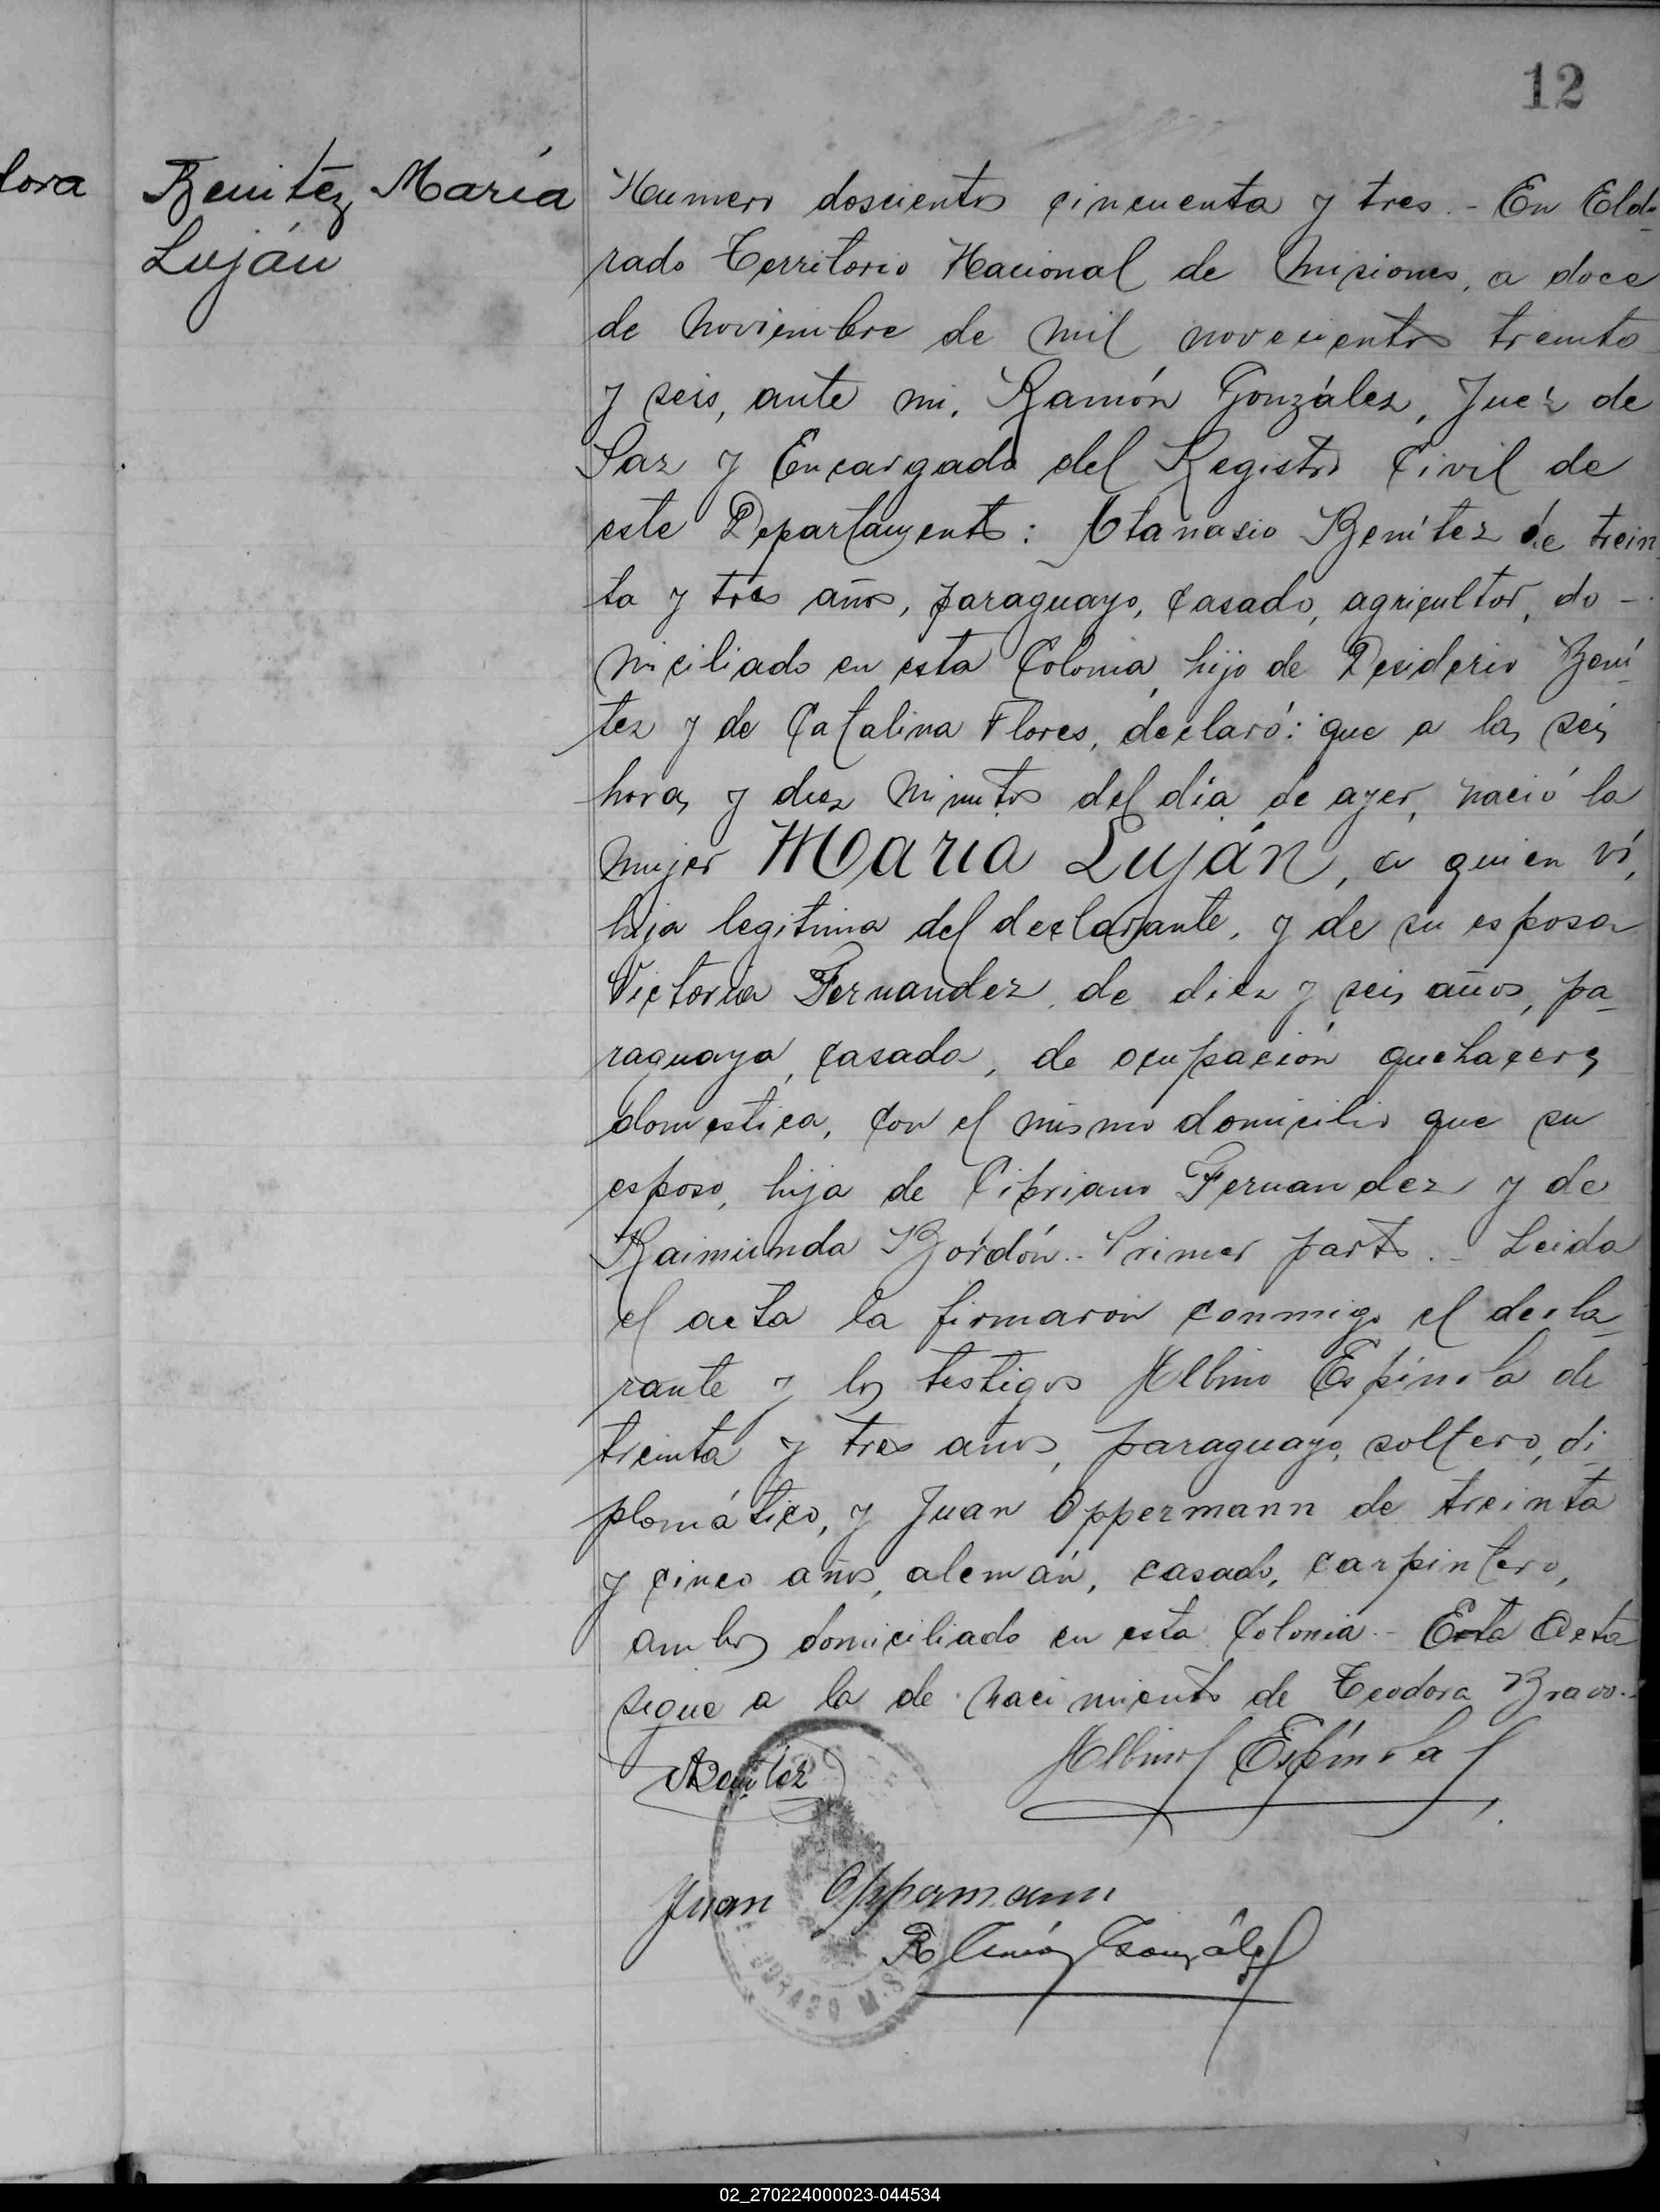 12
lora
Benitez María
Luján
Numero doscientos cincuenta y tres.- En Eldo-
rado Territorio Nacional de Misiones, a doce
de noviembre de mil novecientos treinta
y seis, ante mi, Ramón González, Juez de
Paz y Encargado del Registro Civil de
este Departamento: Atanasio Benítez de trein
ta y tres años, paraguayo, casado, agricultor, do-
miciliado en esta Colonia, hijo de Desiderio Bení-
tez y de Catalina Flores, declaró: que a las seis
horas y diez minutos del día de ayer, nació la
mujer María Luján, a quien ví,
hija legitima del declarante, y de su esposa
Victoria Fernandez, de diez y seis años, pa-
raguaya, casada, de ocupación quehaceres
domestica, con el mismo domicilio que su
esposo, hija de Cipriano Fernandez y de
Raimunda Bordón.- Primer parto.- Leida
el acta la firmaron conmigo el decla-
rante y los testigos Albino Espínola de
treinta y tres años, paraguayo, soltero, di-
plomático, y Juan Oppermann de treinta
y cinco años, alemán, casado, carpintero,
ambos domiciliado en esta Colonia.- Esta Acta
sigue a la de nacimiento de Teodora Bravo.-
ABenitez
Albino Espínola
Juan Oppermann
Ramón González
DORADO M.S
02_270224000023-044534